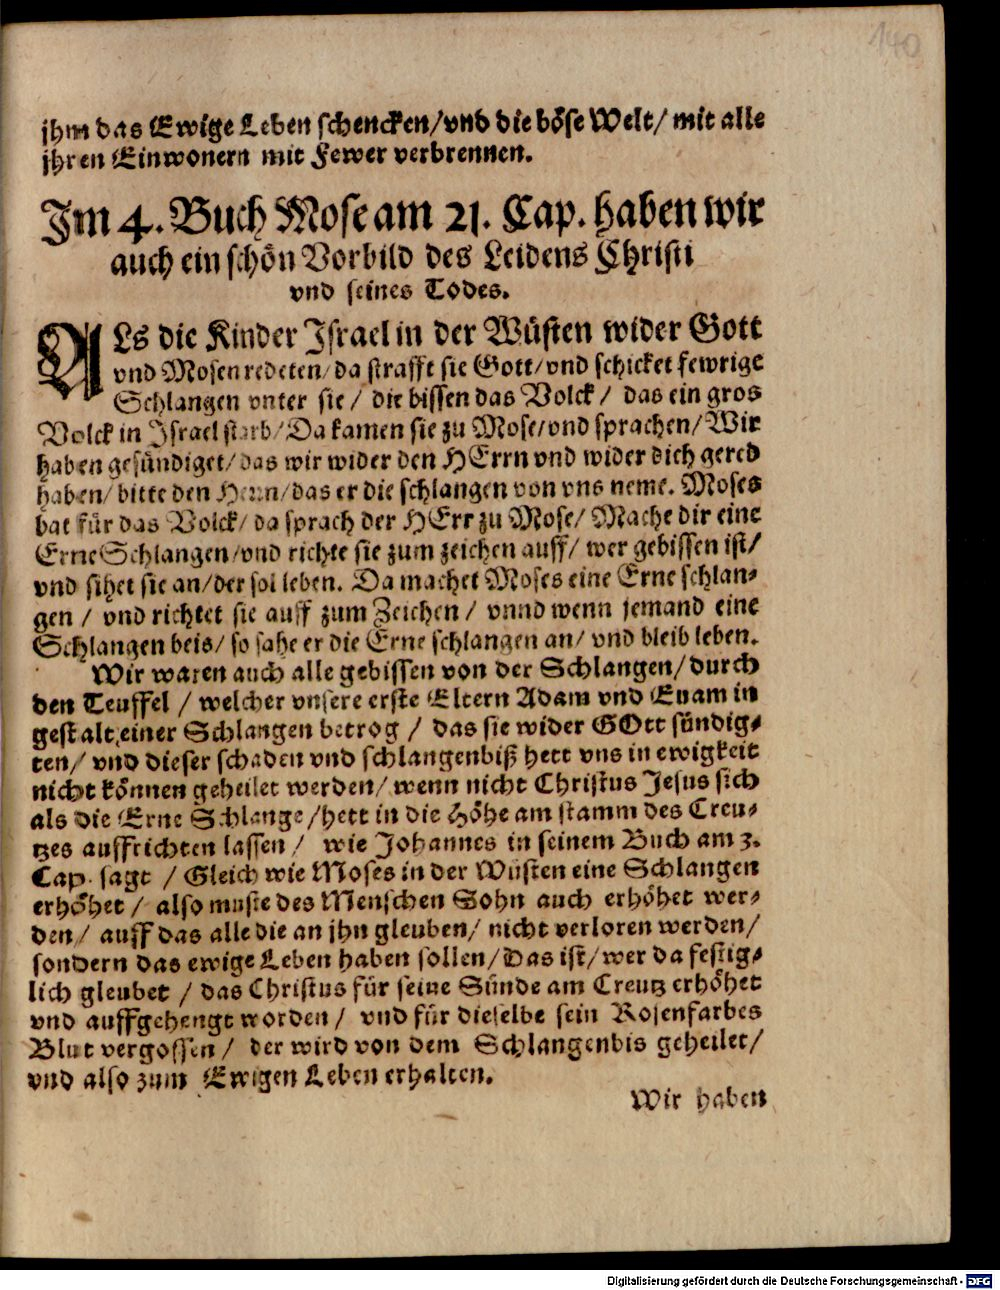 140
jhm das Ewige Leben schencken/vnd die böse Welt/ mit alle
jhren Einwonern mit Fewer verbrennen.
Im 4. Buch Mose am 21. Cap. haben wir
auch ein schön Vorbild des Leidens Christi
vnd seines Todes.
ALs die Kinder Israel in der Wüsten wider Gott
vnd Mosen redeten/da strafft sie Gott/vnd schicket fewrige
Schlangen vnter sie / die bissen das Volck / das ein gros
Volck in Israel starb/Da kamen sie zu Mose/vnd sprachen/Wir
haben gesündiget/das wir wider den HErrn vnd wider dich gered
haben/bitte den Herrn/das er die schlangen von vns neme. Moses
bat für das Volck/da sprach der HErr zu Mose/ Mache dir eine
Erne Schlangen/vnd richte sie zum zeichen auff/ wer gebissen ist/
vnd sihet sie an/der sol leben. Da machet Moses eine Erne schlan-
gen / vnd richtet sie auff zum Zeichen / vnnd wenn jemand eine
Schlangen beis/ so sahe er die Erne schlangen an/ vnd bleib leben.
Wir waren auch alle gebissen von der Schlangen/durch
den Teuffel / welcher vnsere erste Eltern Adam vnd Euam in
gestalt einer Schlangen betrog / das sie wider GOtt sündig-
ten/ vnd dieser schaden vnd schlangenbiß hett vns in ewigkeit
nicht können geheilet werden/wenn nicht Christus Jesus sich
als die Erne Schlange/hett in die Höhe am stamm des Creu-
tzes auffrichten lassen / wie Johannes in seinem Buch am 3.
Cap. sagt / Gleich wie Moses in der Wüsten eine Schlangen
erhöhet / also muste des Menschen Sohn auch erhöhet wer-
den/ auff das alle die an jhn gleuben/ nicht verloren werden/
sondern das ewige Leben haben sollen/Das ist/wer da festig-
lich gleubet / das Christus für seine Sünde am Creutz erhöhet
vnd auffgehengt worden/ vnd für dieselbe sein Rosenfarbes
Blut vergossen/ der wird von dem Schlangenbis geheilet/
vnd also zum Ewigen Leben erhalten.
Wir haben
Digitalisierung gefördert durch die Deutsche Forschungsgemeinschaft - DFG